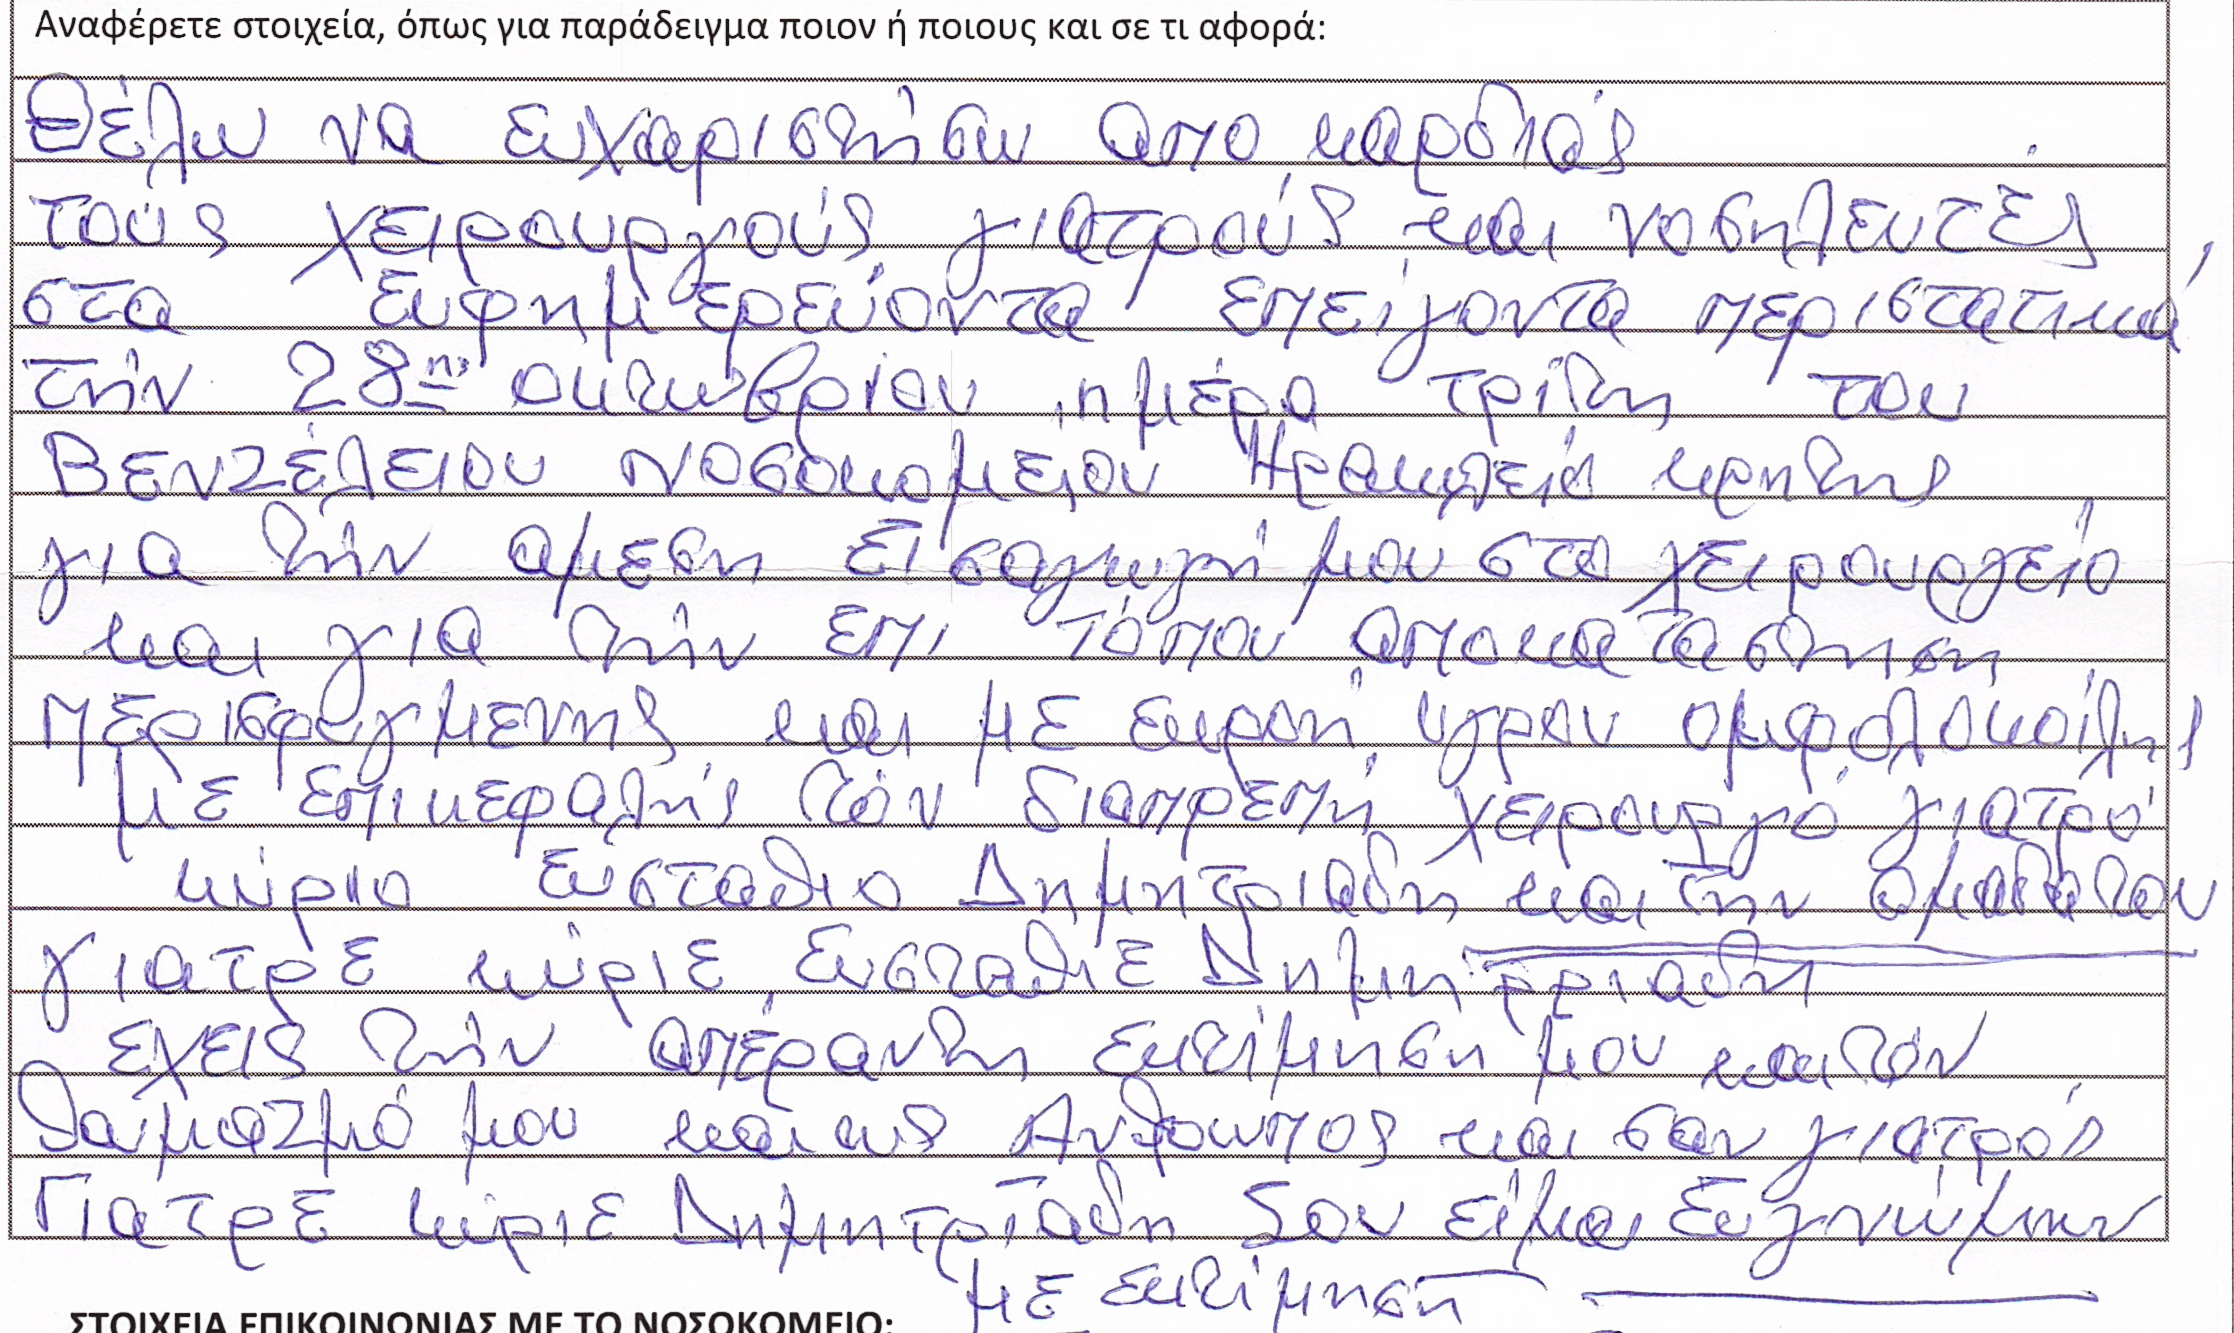 Αναφέρετε στοιχεία, όπως για παράδειγμα ποιον ή ποιους και σε τι αφορά:
Θέλω να ευχαριστήσω απο καρδιάς
τούς χειρουργούς γιατρούς και νοσηλευτές,
στα ευφημερεύοντα επείγοντα περιστατικά
τήν 28ης οκτωβρίου, ημέρα τρίτη του
Βενζέλειου νοσοκομείου Ηρακλειό κρητης
για τήν αμεση εισαγωγή μου στο χειρουργείο
και για τήν επι τόπου αποκατασταση
περισφαγμενης και με εκροή υγρου ομφαλοκοίλης
με επικεφαλής τόν διαπρεπή χειρουργό γιατρό
κύριο Ευσταθιο Δημητριαδη και την ομαδα του
γιατρε κύριε Ευσταθιε Δημητρριαδη
εχεις τήν απέραντη εκτίμηση μου και τόν
θαυμαζμό μου και ως Ανθρωπος και σαν γιατρός
Γιατρε κύριε Δημητρίαδη Σου είμαι ευγνώμων
με εκτίμηση
ΣΤΟΙΧΕΙΑ ΕΠΙΚΟΙΝΩΝΙΑΣ ΜΕ ΤΟ ΝΟΣΟΚΟΜΕΙΟ: